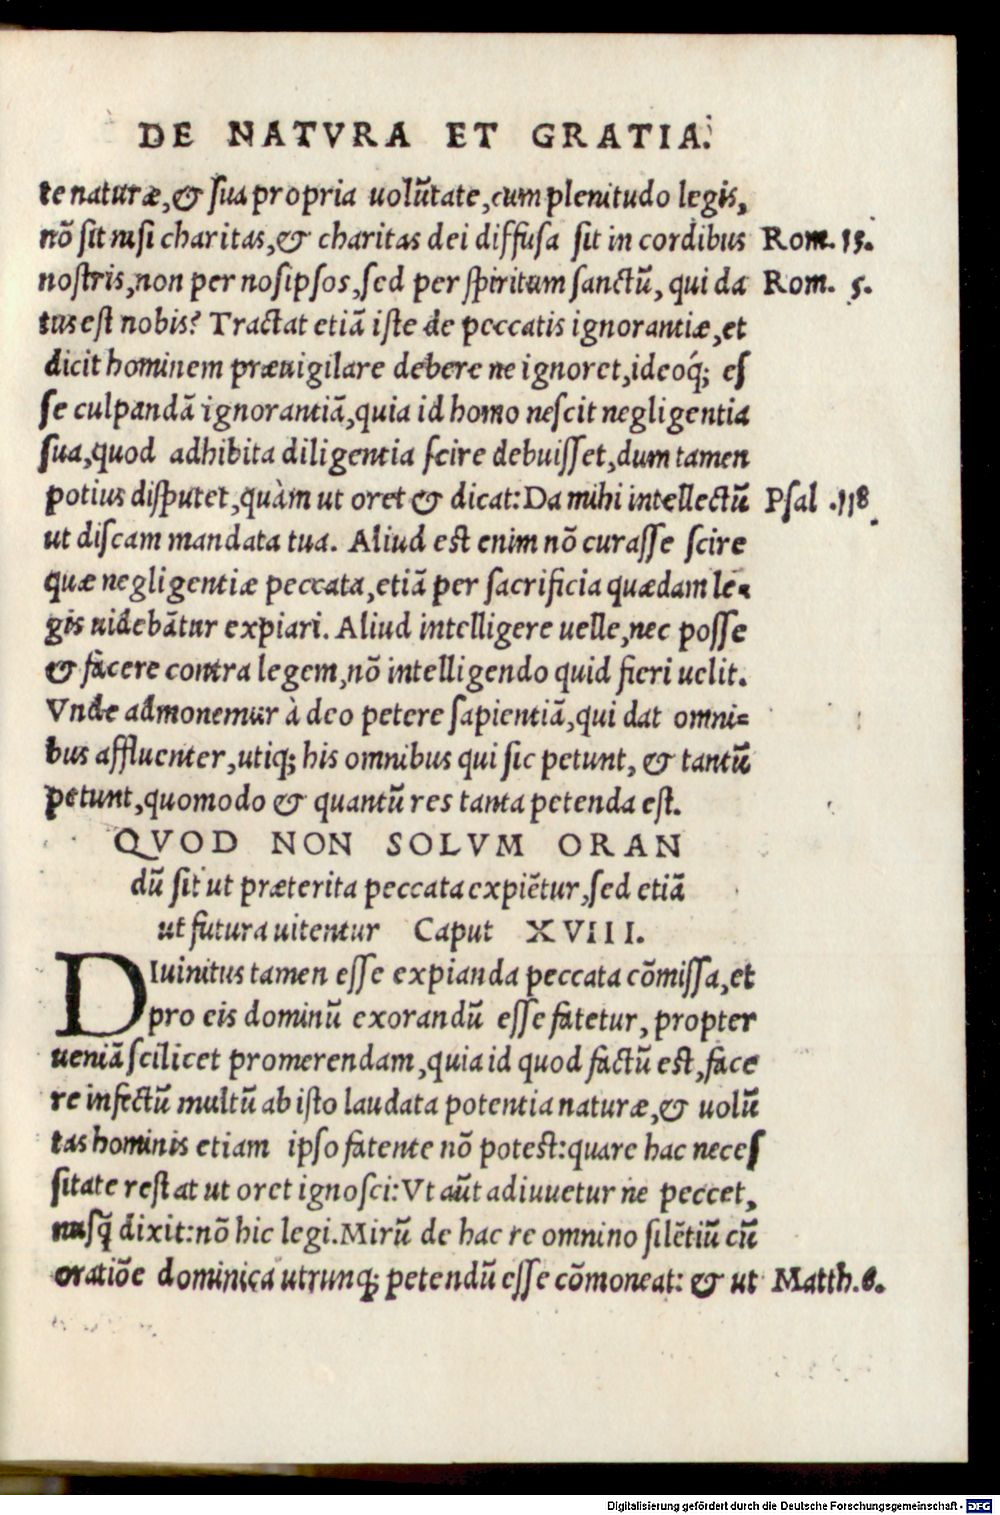 DE NATVRA ET GRATIA.
te naturæ,& sua propria uolūtate,cum plenitudo legis,
nō sit nisi charitas,& charitas dei diffusa sit in cordibus Rom. 13.
nostris,non per nosipsos,sed per spiritum sanctū, qui da Rom. 5.
tus est nobis? Tractat etiā iste de peccatis ignorantiæ,et
dicit hominem præuigilare debere ne ignoret,ideoq́; es
se culpandā ignorantiā,quia id homo nescit negligentia
sua,quod adhibita diligentia scire debuisset,dum tamen
potius disputet,quàm ut oret & dicat:Da mihi intellectū Psal .118.
ut discam mandata tua. Aliud est enim nō curasse scire
quæ negligentiæ peccata,etiā per sacrificia quædam le-
gis uidebātur expiari. Aliud intelligere uelle,nec posse
& facere contra legem,nō intelligendo quid fieri uelit.
Vnde admonemur à deo petere sapientiā,qui dat omni=
bus affluenter,utiq; his omnibus qui sic petunt, & tantū
petunt,quomodo & quantū res tanta petenda est.
QVOD NON SOLVM ORAN
dū sit ut præterita peccata expiētur,sed etiā
ut futura uitentur Caput XVIII.
DIuinitus tamen esse expianda peccata cōmissa,et
pro eis dominū exorandū esse fatetur, propter
ueniā scilicet promerendam,quia id quod factū est,face
re infectū multū ab isto laudata potentia naturæ,& uolū
tas hominis etiam ipso fatente nō potest:quare hac neces
sitate restat ut oret ignosci:Vt aūt adiuuetur ne peccet,
nusq̄ dixit:nō hic legi.Mirū de hac re omnino silētiū cū
oratiōe dominica utrunq; petendū esse cōmoneat: & ut Matth.6.
Digitalisierung gefördert durch die Deutsche Forschungsgemeinschaft - DFG